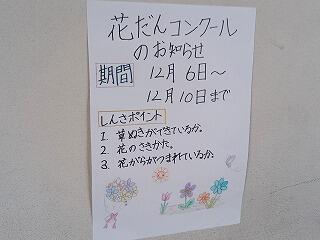 花だんコンクール
のお知らせ
期間 12月6日〜
12月10日まで
しんさポイント
1. 草ぬきができているか。
2. 花のさきかた。
3. 花がらがつまれているか。